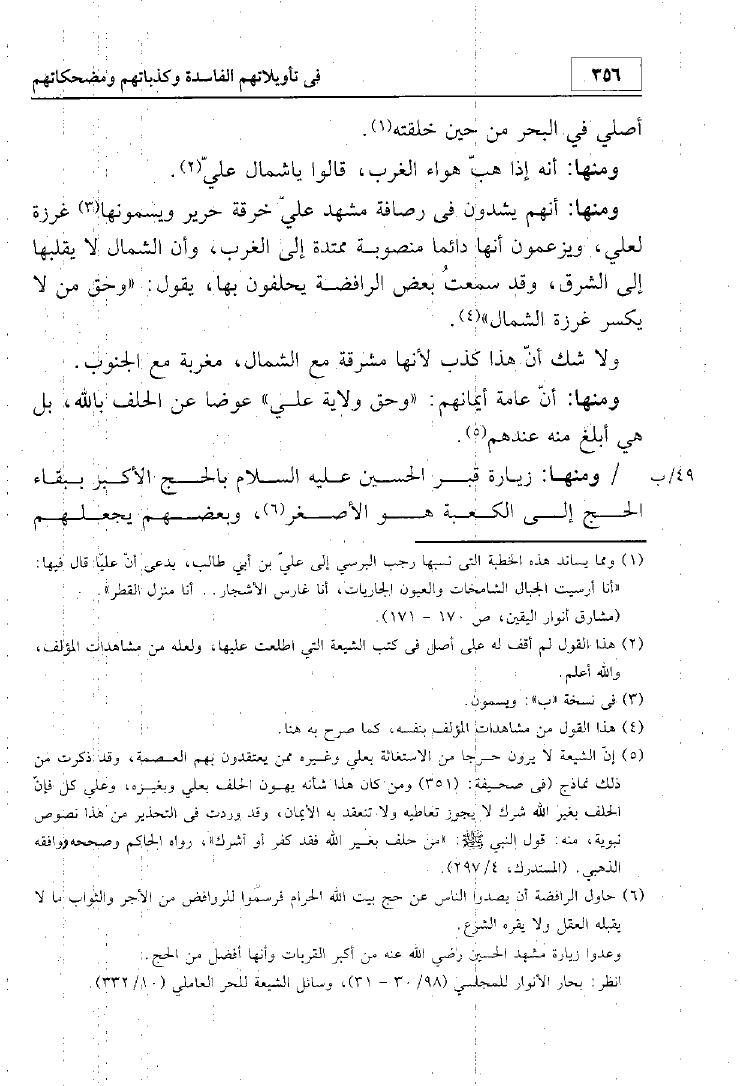 ٣٥٦ فى تأويلاتهم الفاسدة وكذباتهم ومضحكاتهم
أصلي في البحر من حين خلقته(١).
ومنها: أنه إذا هبّ هواء الغرب، قالوا ياشمال عليّ(٢).
ومنها: أنهم يشدون فى رصافة مشهد عليّ خرقة حرير ويسمونها(٣) غرزة
لعلي، ويزعمون أنها دائما منصوبة ممتدة إلى الغرب، وأن الشمال لا يقلبها
إلى الشرق، وقد سمعتُ بعض الرافضة يحلفون بها، يقول: «وحق من لا
يكسر غرزة الشمال»(٤).
ولا شك أنّ هذا كذب لأنها مشرقة مع الشمال، مغربة مع الجنوب.
ومنها: أنّ عامة أيمانهم: «وحق ولاية علي» عوضا عن الحلف بالله، بل
هي أبلغ منه عندهم(٥).
٤٩/ب / ومنها: زيارة قبر الحسين عليه السلام بالحج الأكبر ببقاء
الحج إلى الكعبة هو الأصغر(٦)، وبعضهم يجعلهم
(١) ومما يساند هذه الخطبة التى نسبها رجب البرسي إلى عليّ بن أبي طالب، يدعى أنّ عليّا قال فيها:
«أنا أرسيت الجبال الشامخات والعيون الجاريات، أنا غارس الأشجار.. أنا منزل القطر».
(مشارق أنوار اليقين، ص ١٧٠ - ١٧١).
(٢) هذا القول لم أقف له على أصل فى كتب الشيعة التي اطلعت عليها، ولعله من مشاهدات المؤلف،
والله أعلم.
(٣) فى نسخة «ب»: ويسمون.
(٤) هذا القول من مشاهدات المؤلف بنفسه، كما صرح به هنا.
(٥) إنّ الشيعة لا يرون حرجا من الاستغاثة بعلي وغيره ممن يعتقدون بهم العصمة، وقد ذكرت من
ذلك نماذج (فى صحيفة: (٣٥١) ومن كان هذا شأنه يهون الحلف بعلي وبغيره، وعلي كل فإنّ
الحلف بغير الله شرك لا يجوز تعاطيه ولا تنعقد به الأيمان، وقد وردت فى التحذير من هذا نصوص
نبوية، منه: قول النبي ﷺ: «من حلف بغير الله فقد كفر أو أشرك»، رواه الحاكم وصححه ووافقه
الذهبي. (المستدرك، ٢٩٧/٤).
(٦) حاول الرافضة أن يصدوا الناس عن حج بيت الله الحرام فرسمّوا للروافض من الأجر والثواب ما لا
يقبله العقل ولا يقره الشرع.
وعدوا زيارة مشهد الحسين رضي الله عنه من أكبر القربات وأنها أفضل من الحج.
انظر: بحار الأنوار للمجلسي (٩٨/ ٣٠ - ٣١)، وسائل الشيعة للحر العاملي (١٠/ ٣٣٢).